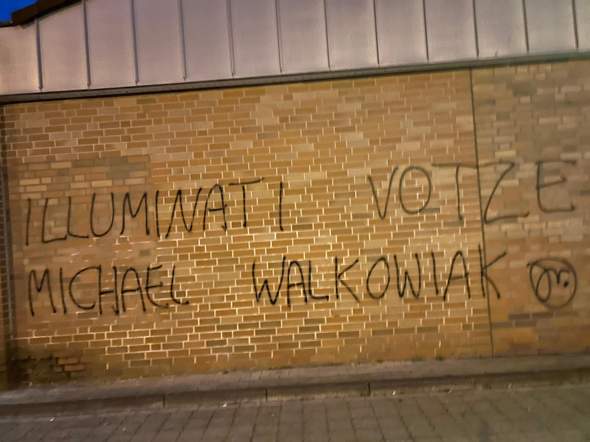 ILLUMINATI VOTZE
MICHAEL WALKOWIAK